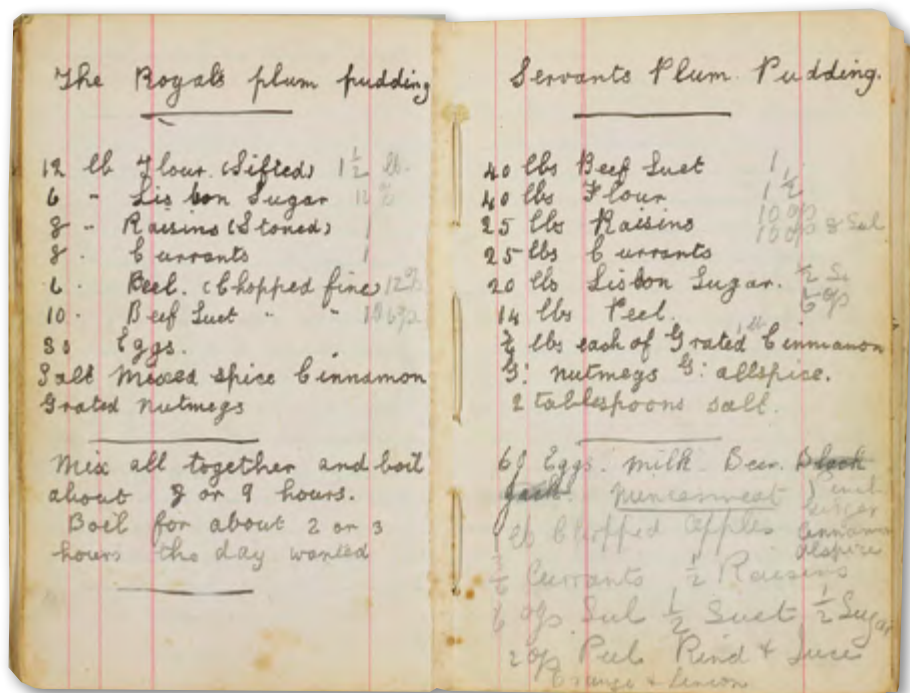 The Royals plum pudding
12 lb Flour (Sifted) 1½ lb.
6 " Lisbon Sugar
8 " Raisins (Stoned) 1
8 . Currants 1
6 . Peel. (Chopped fine)
10 . Beef Suet " "
30 Eggs.
Salt Mixed spice Cinnamon
Grated nutmegs
Mix all together and boil
about 8 or 9 hours.
Boil for about 2 or 3
hours the day wanted
Servants Plum Pudding.
40 lbs Beef Suet 1
40 lbs Flour 1½
25 lbs Raisins
25 lbs Currants
20 lbs Lisbon Sugar.
14 lbs Peel.
lbs each of Grated Cinnamon
G: nutmegs G: allspice.
2 tablespoons salt.
Eggs. Milk. Beer. Black
Jack Mincemeat
lb Chopped apples
Cinnamon
alspice
Currants ½ Raisins
Suet ½ Sugar
Peel Rind & Juice
Orange & Lemon